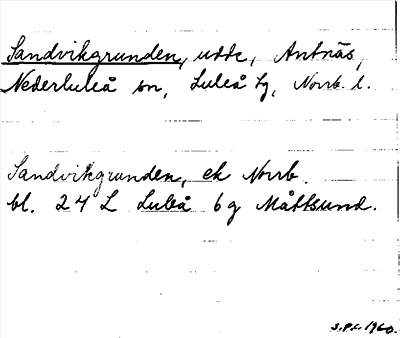 Sandvikgrunden, udde, Antnäs,
Nederluleå sn, Luleå tg, Norrb. l.
Sandvikgrunden, ek Norrb.
bl. 24 L Luleå 6 g Måttsund.
S.P.L. 1960.